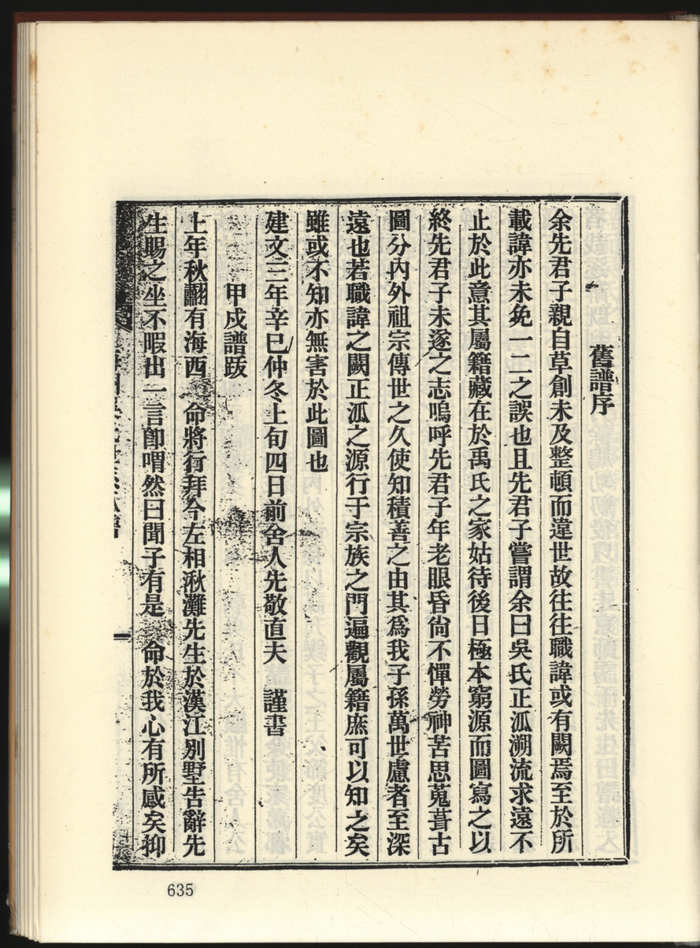 舊譜序
余先君子親自草創未及整頓而違世故往往職諱或有闕焉至於所
載諱亦未免一二之誤也且先君子嘗謂余曰吳氏正派溯流求遠不
止於此意其屬籍藏在於禹氏之家姑待後日極本窮源而圖寫之以
終先君子未遂之志嗚呼先君子年老眼昏尙不憚勞神苦思蒐葺古
圖分內外祖宗傳世之久使知積善之由其爲我子孫萬世慮者至深
遠也若職諱之闕正派之源行于宗族之門遍觀屬籍庶可以知之矣
雖或不知亦無害於此圖也
建文三年辛巳仲冬上旬四日前舍人先敬直夫 謹書
甲戍譜跋
上年秋翽有海西 命將行拜今左相楸灘先生於漢江別墅告辭先
生賜之坐不暇出一言卽喟然曰聞子有是 命於我心有所感矣抑
635